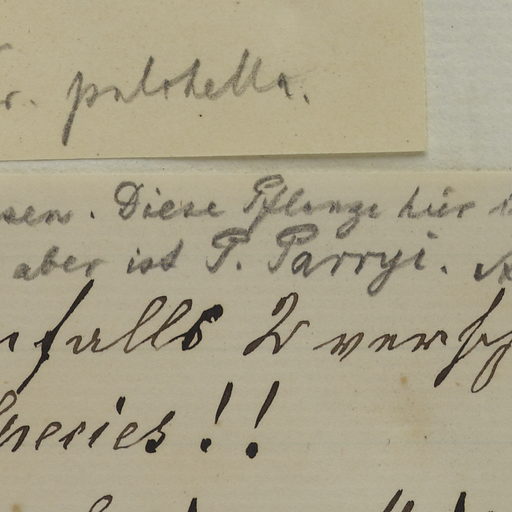 r. pulchella.
sen. Diese Pflanze hier i
aber ist P. Parryi.
nfalls 2 versch
Species!!